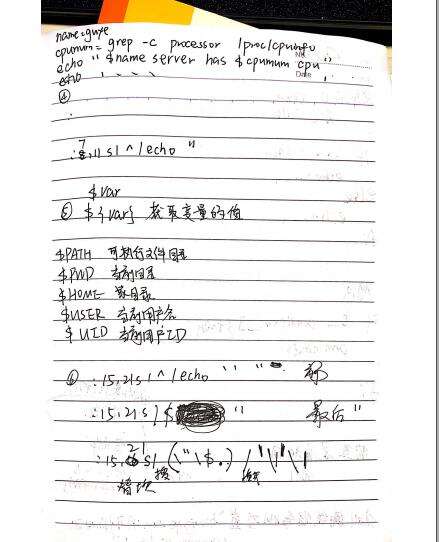 name=guye
cpunum= grep -c processor /proc/cpuinfo
echo " $name server has $cpunum cpu "
No
Date
echo
④
7
:8,11 s/^/echo "
$var
⑤ ${var} 获取变量的值
$PATH 可执行文件目录
$PWD 当前目录
$HOME 家目录
$USER 当前用户名
$UID 当前用户ID
⑥ :15,21s/^/echo
:15,21s/$ " 最后"
21
:15, s/ (\"\$.) / "\1"\1
替换